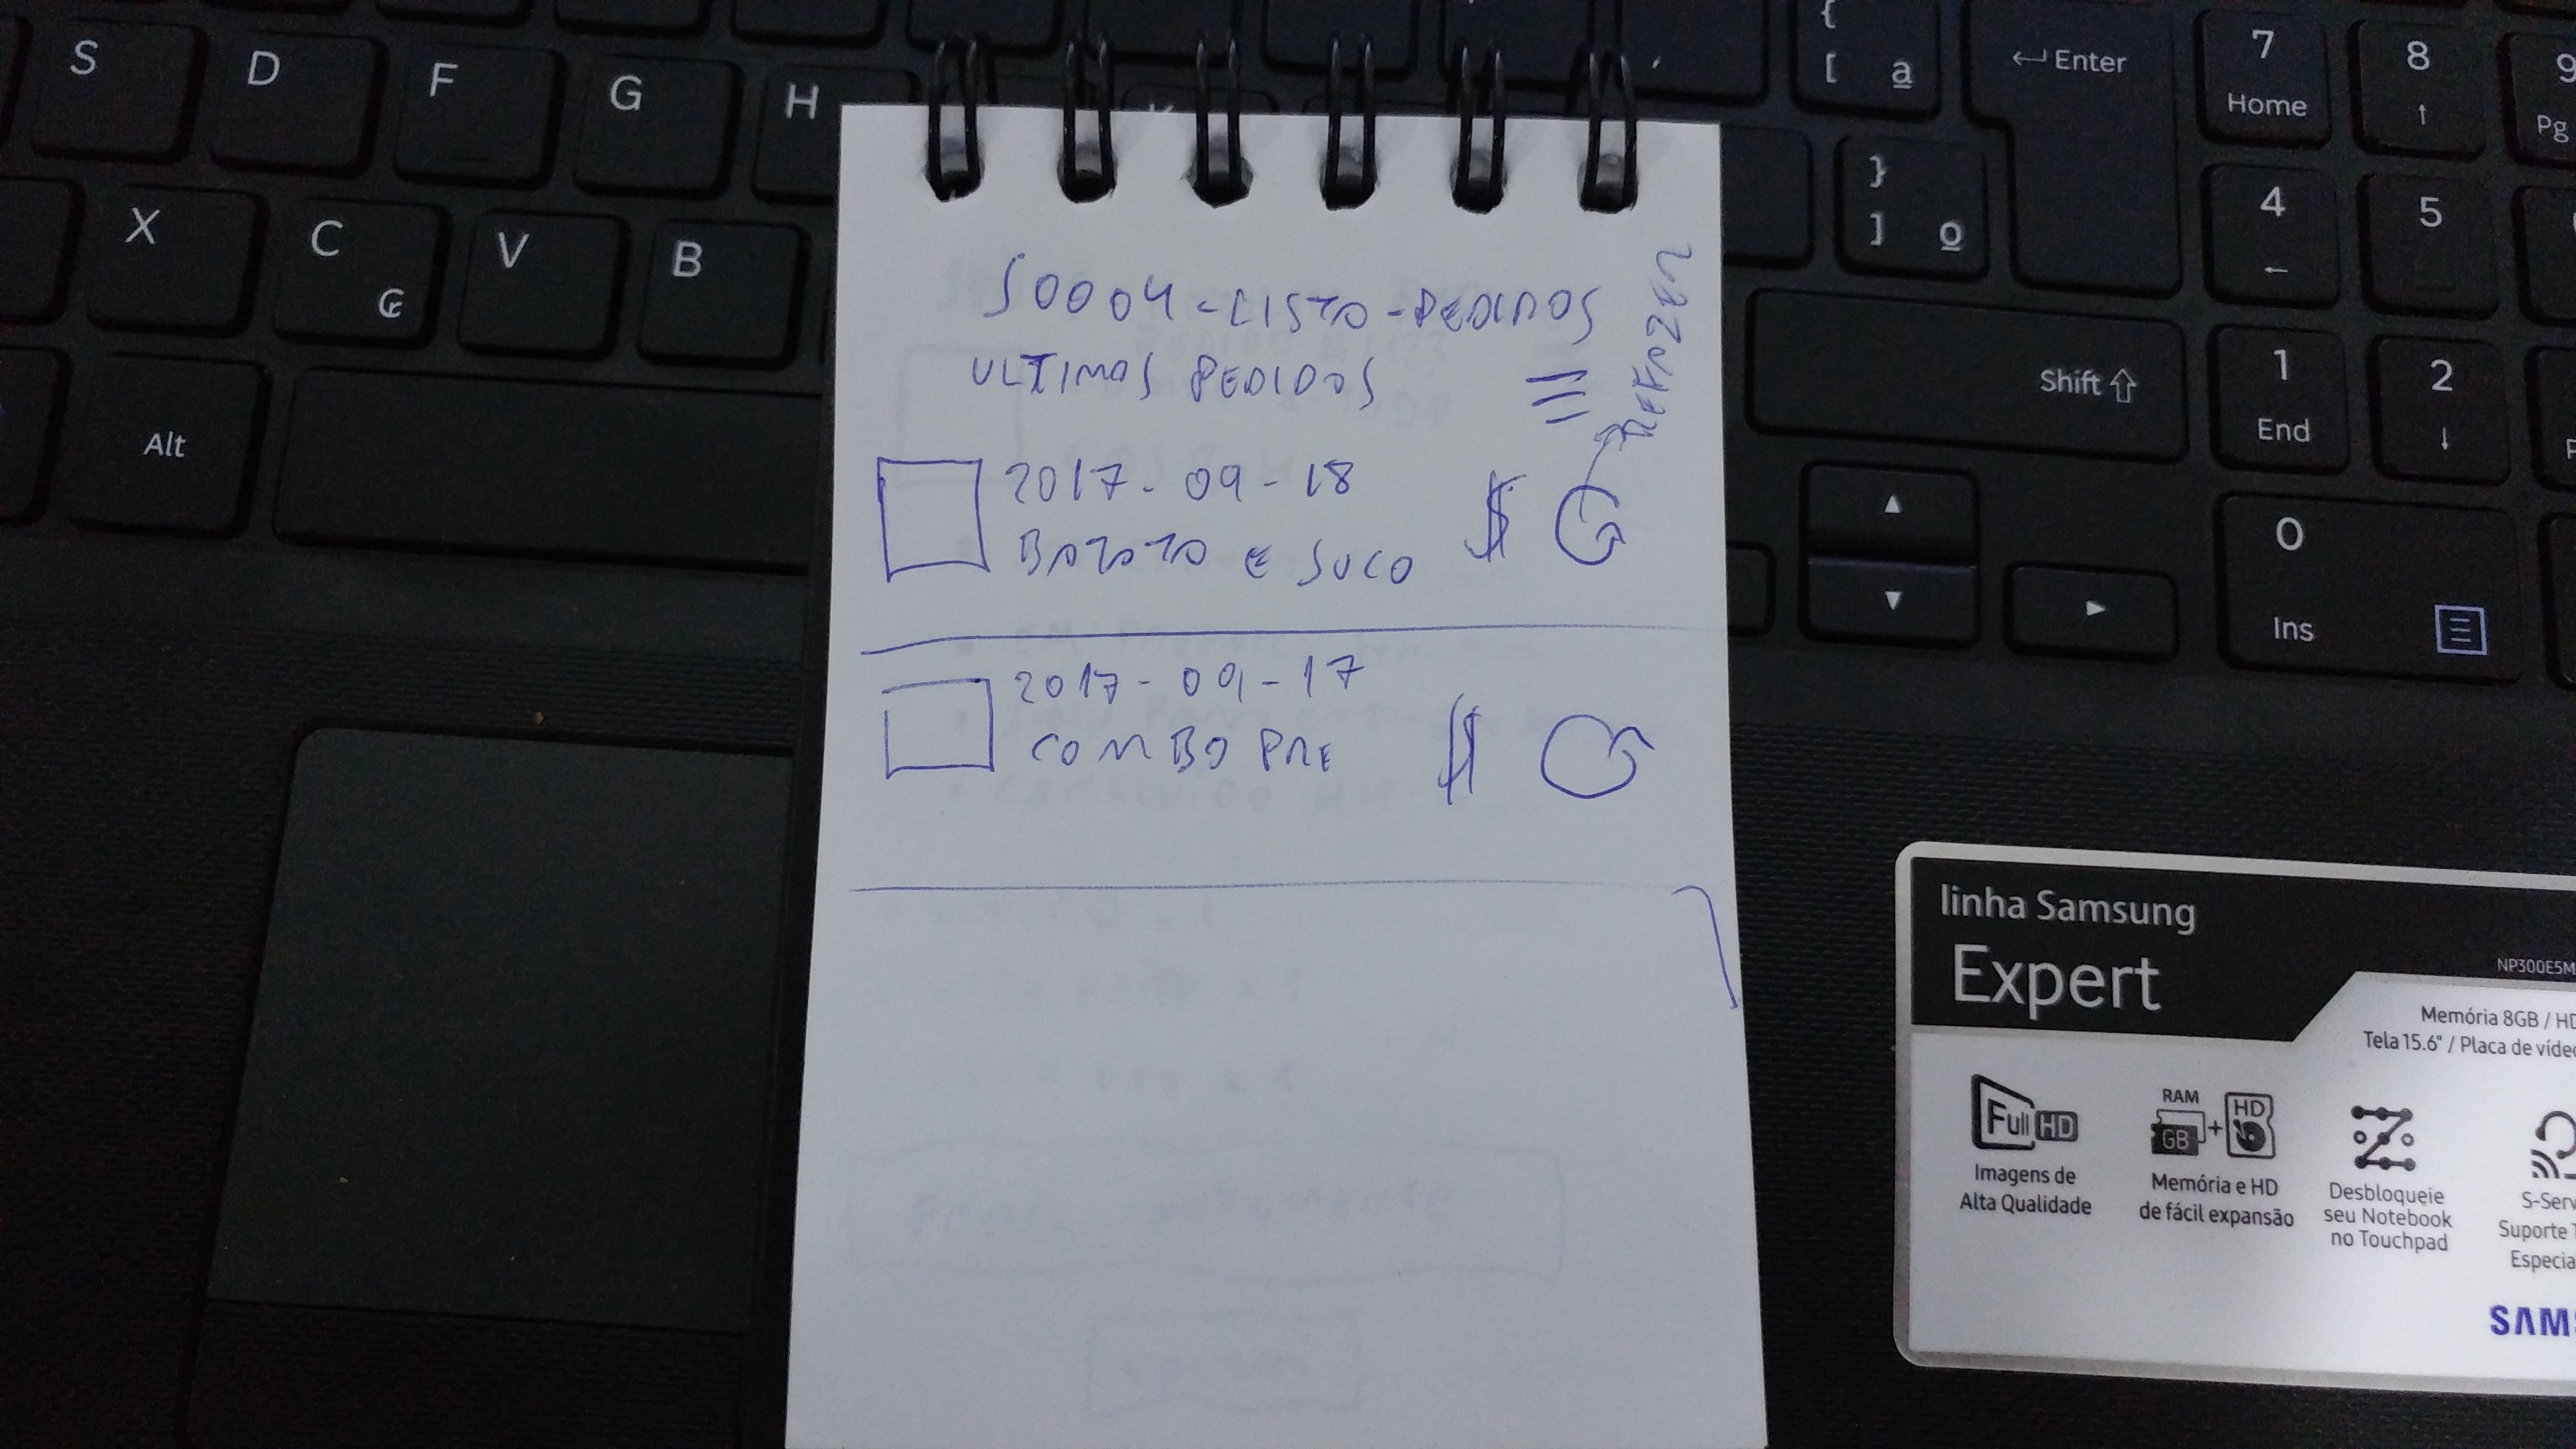 S D F G H
{ [ ª
Enter
7 Home
8 ↑
9 Pg
X C ₢ V B
} ] º
4 ←
5
Alt
Shift
1 End
2 ↓
0 Ins
S0004-LISTA-PEDIDOS
ULTIMOS PEDIDOS
REFAZER
2017-09-18
BATATA E SUCO $
2017-09-17
COMBO PRE $
linha Samsung
Expert
NP300E5M
Memória 8GB / HD
Tela 15.6" / Placa de vídeo
Full HD
Imagens de
Alta Qualidade
RAM
GB + HD
Memória e HD
de fácil expansão
Desbloqueie
seu Notebook
no Touchpad
S-Serv
Suporte
Especia
SAMS